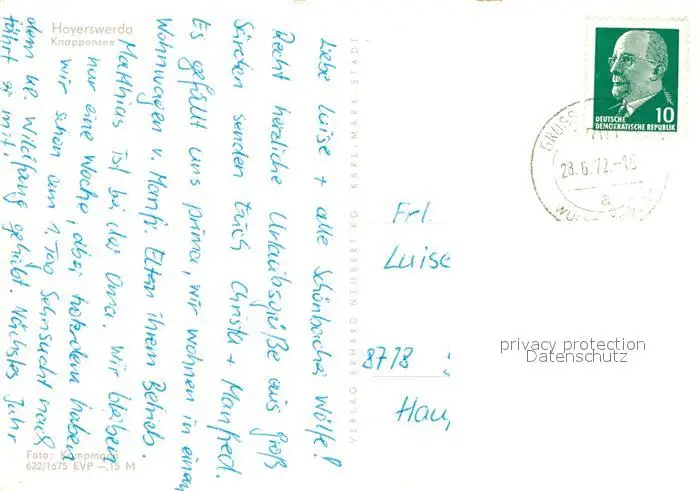 Hoyerswerda
Knappensee
Liebe Luise + alle Schönbacher Wölfe!
Recht herzliche Urlaubsgrüße aus Groß
Särchen senden Euch Christa + Manfred.
Es gefällt uns prima, wir wohnen in einem
Wohnwagen v. Manfr. Eltern ihrem Betrieb.
Matthias ist bei der Oma. Wir bleiben
nur eine Woche, aber trotzdem haben
wir schon am 1. Tag Sehnsucht nach
dem kl. Wildfang gehabt. Nächstes Jahr
fährt er mit.
Foto: Kampmann
622/1675 EVP –,15 M
VERLAG ERHARD NEUBERT KG · KARL-MARX-STADT
10
DEUTSCHE
DEMOKRATISCHE REPUBLIK
GROSS
28.6.72.-16
a
Frl.
Luise
8718
Hau
privacy protection
Datenschutz